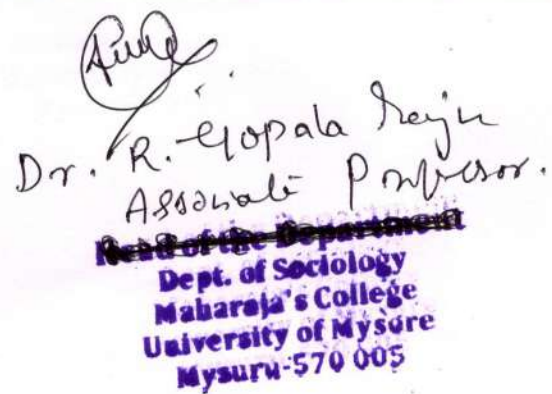 Dr. R. Gopala Raju
Associate Professor.
Head of the Department
Dept. of Sociology
Maharaja's College
University of Mysore
Mysuru-570 005